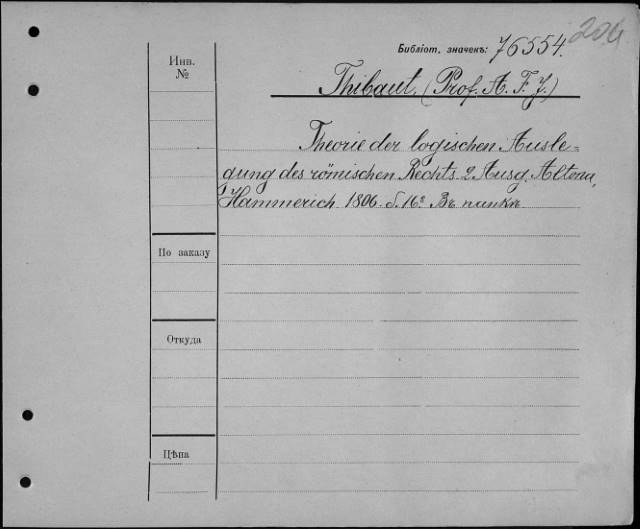 204
Библіот. значекъ: 76554.
Инв.
№
Thibaut. (Prof. A. F. J.)
Theorie der logischen Ausle=
gung des römischen Rechts 2 Ausg. Altona,
Hammerich 1806. 16º Въ папкѣ
По заказу
Откуда
Цѣна